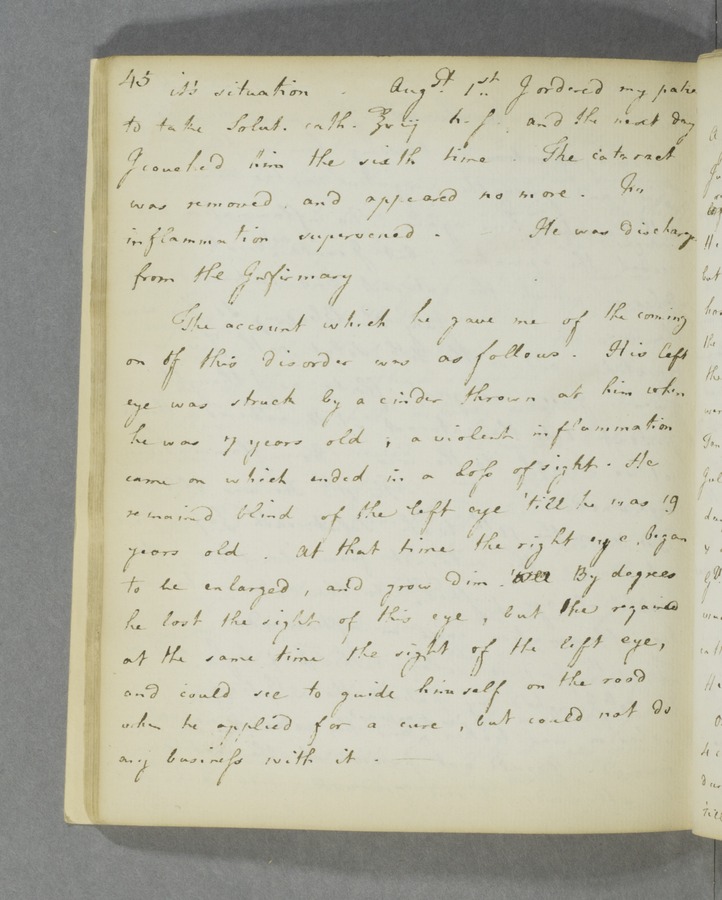 45 it's situation . Augst 1st I ordered my patie
to take Solut. cath. ʒvij h.s. and the next day
I couched him the sixth time . The cataract
was removed, and appeared no more . No
inflammation supervened . He was discharg
from the Infirmary
The account which he gave me of the coming
on of this disorder was as follows . His left
eye was struck by a cinder thrown at him when
he was 7 years old ; a violent inflammation
came on which ended in a loss of sight . He
remain'd blind of the left eye 'till he was 19
years old . At that time the right eye began
to be enlarged, and grow dim . By degrees
he lost the sight of this eye, but he regained
at the same time the sight of the left eye,
and could see to guide himself on the road
when he applied for a cure, but could not do
any business with it . —